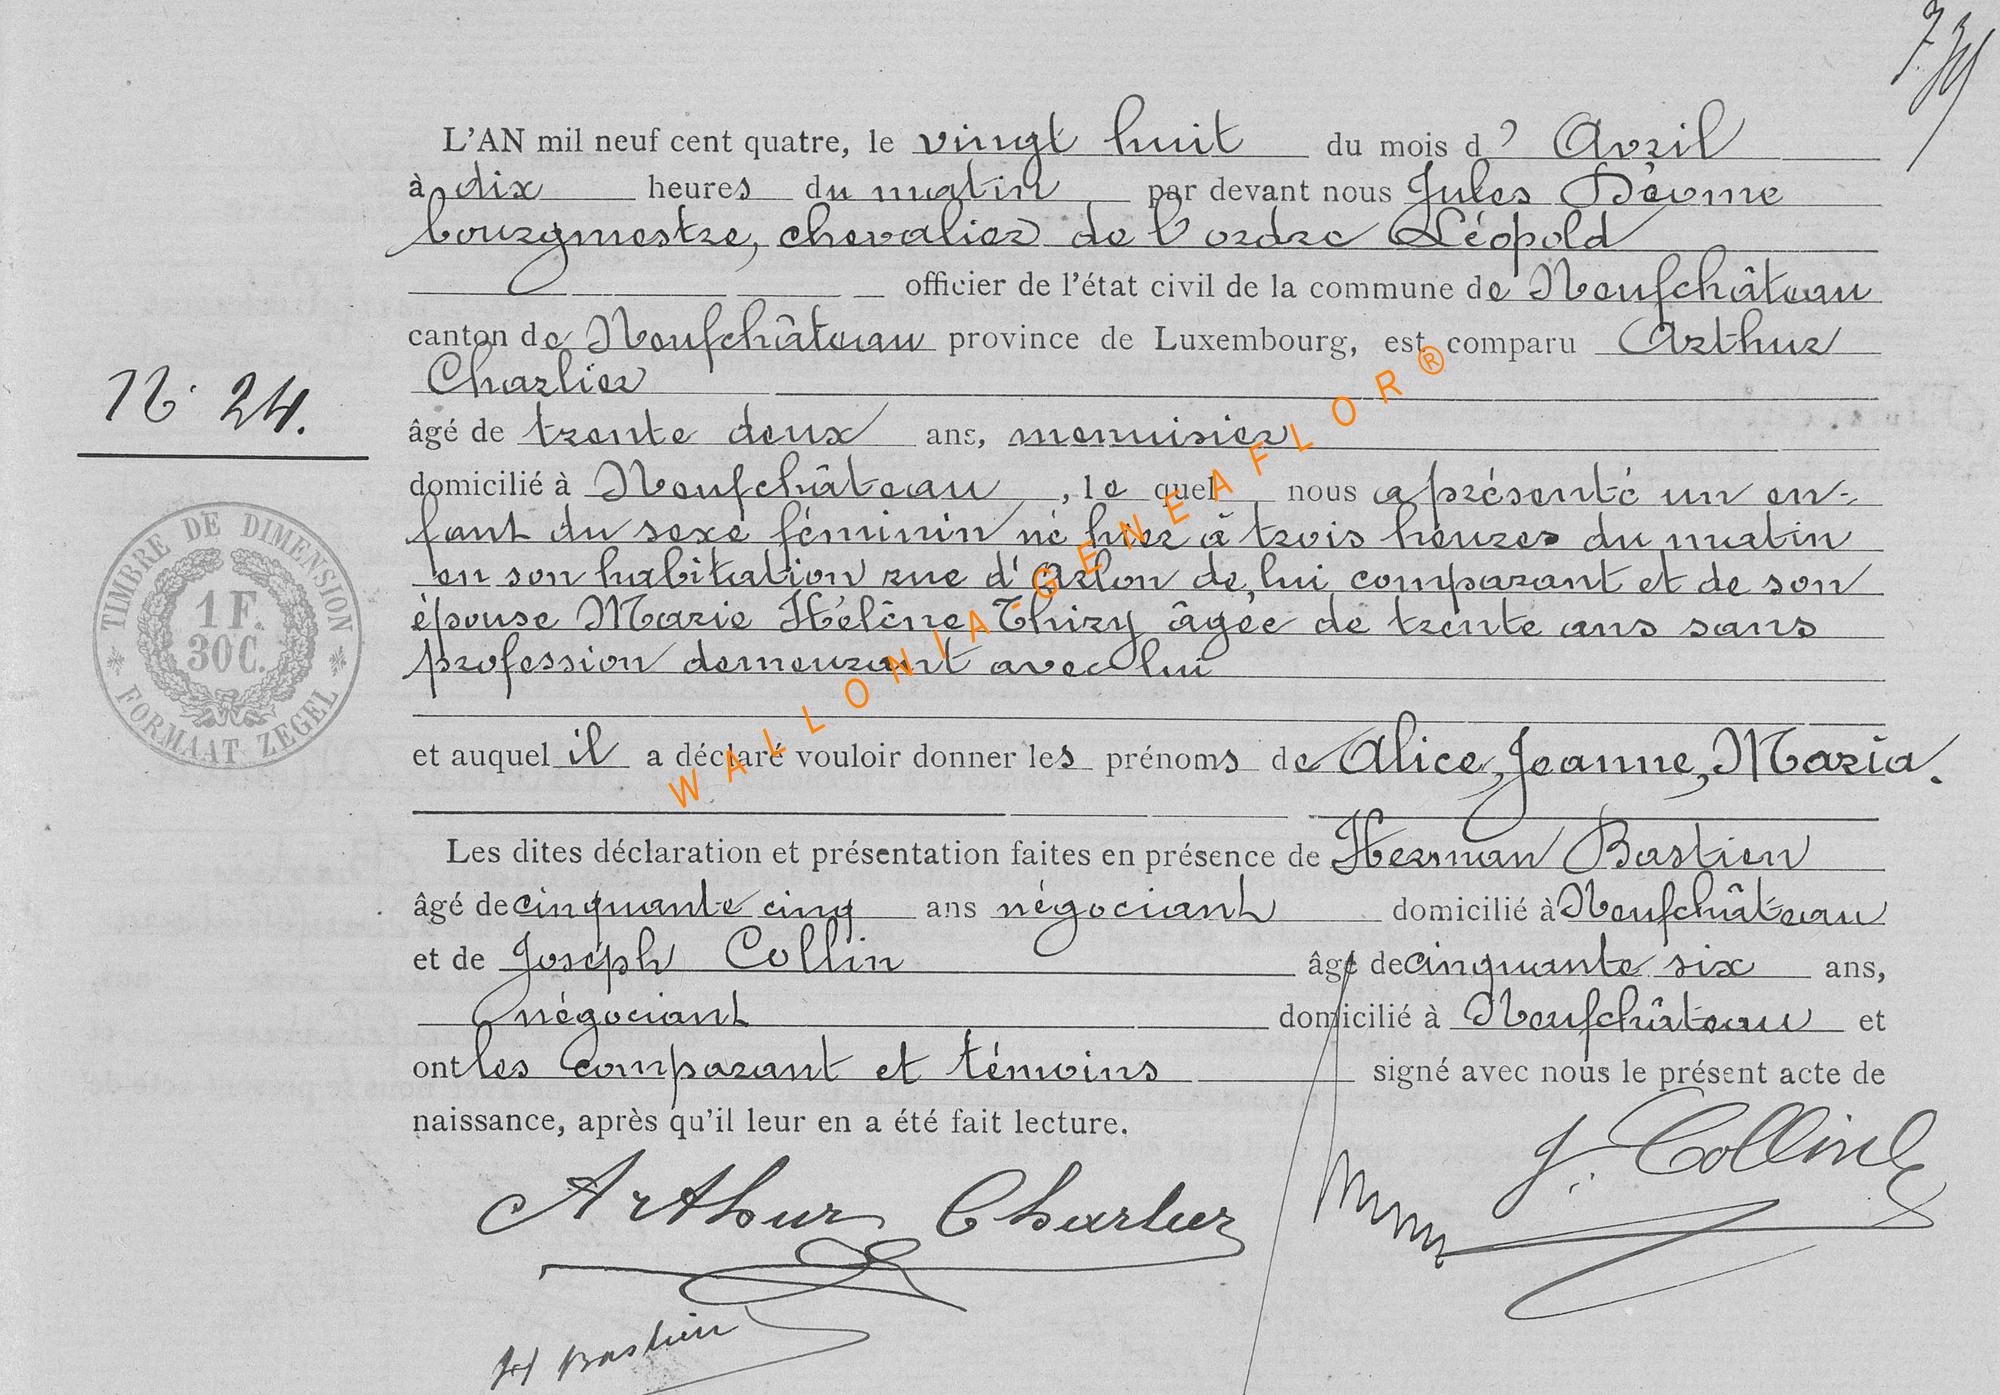 L'AN mil neuf cent quatre, le vingt huit du mois d' Avril
à dix heures du matin par devant nous Jules
bourgmestre, chevalier de l'ordre Léopold
officier de l'état civil de la commune de Neufchâteau
canton de Neufchâteau province de Luxembourg, est comparu Arthur
Charlier
N° 24.
âgé de trente deux ans, menuisier
domicilié à Neufchâteau, le quel nous a présenté un en-
fant du sexe féminin né hier à trois heures du matin
en son habitation rue d'Arlon de lui comparant et de son
épouse Marie Hélène Thiry âgée de trente ans sans
profession demeurant avec lui
TIMBRE DE DIMENSION
1 F.
30 C.
FORMAAT ZEGEL
et auquel il a déclaré vouloir donner les prénoms de Alice, Jeanne, Maria.
Les dites déclaration et présentation faites en présence de Herman Bastien
âgé de cinquante cinq ans négociant domicilié à Neufchâteau
et de Joseph Collin âgé de cinquante six ans,
négociant domicilié à Neufchâteau et
ont les comparant et témoins signé avec nous le présent acte de
naissance, après qu'il leur en a été fait lecture.
J. Collin
Arthur Charlier
H Bastien
WALLONIA-GENEAFLOR®